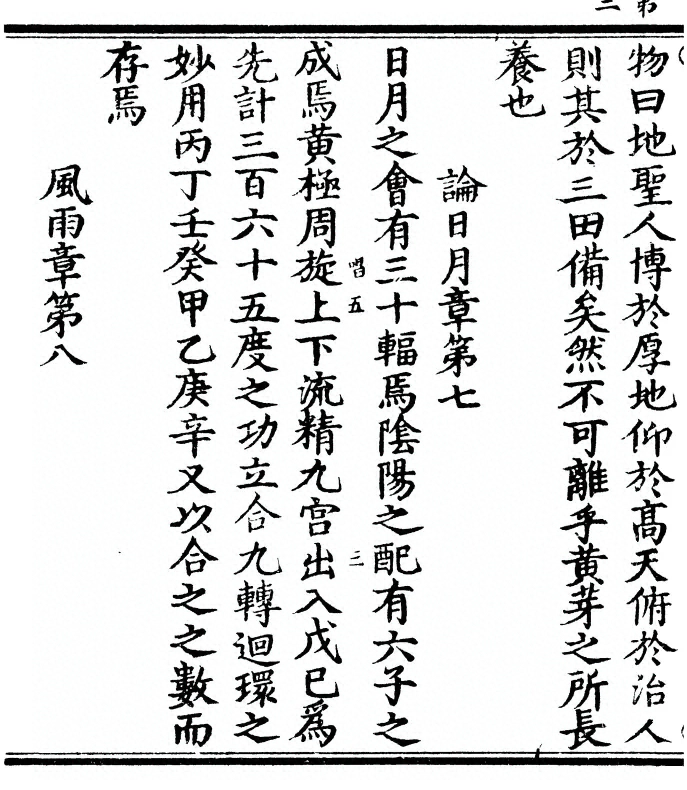 物曰地聖人博於厚地仰於髙天俯於治人
則其於三田備矣然不可離乎黄芽之所長
養也
論日月章第七
日月之會有三十輻焉隂陽之配有六子之
唱五
三
成焉黄極周旋上下流精九宫出入戊巳爲
先計三百六十五度之功立合九轉迴環之
妙用丙丁壬癸甲乙庚辛又以合之之數而
存焉
風雨章第八